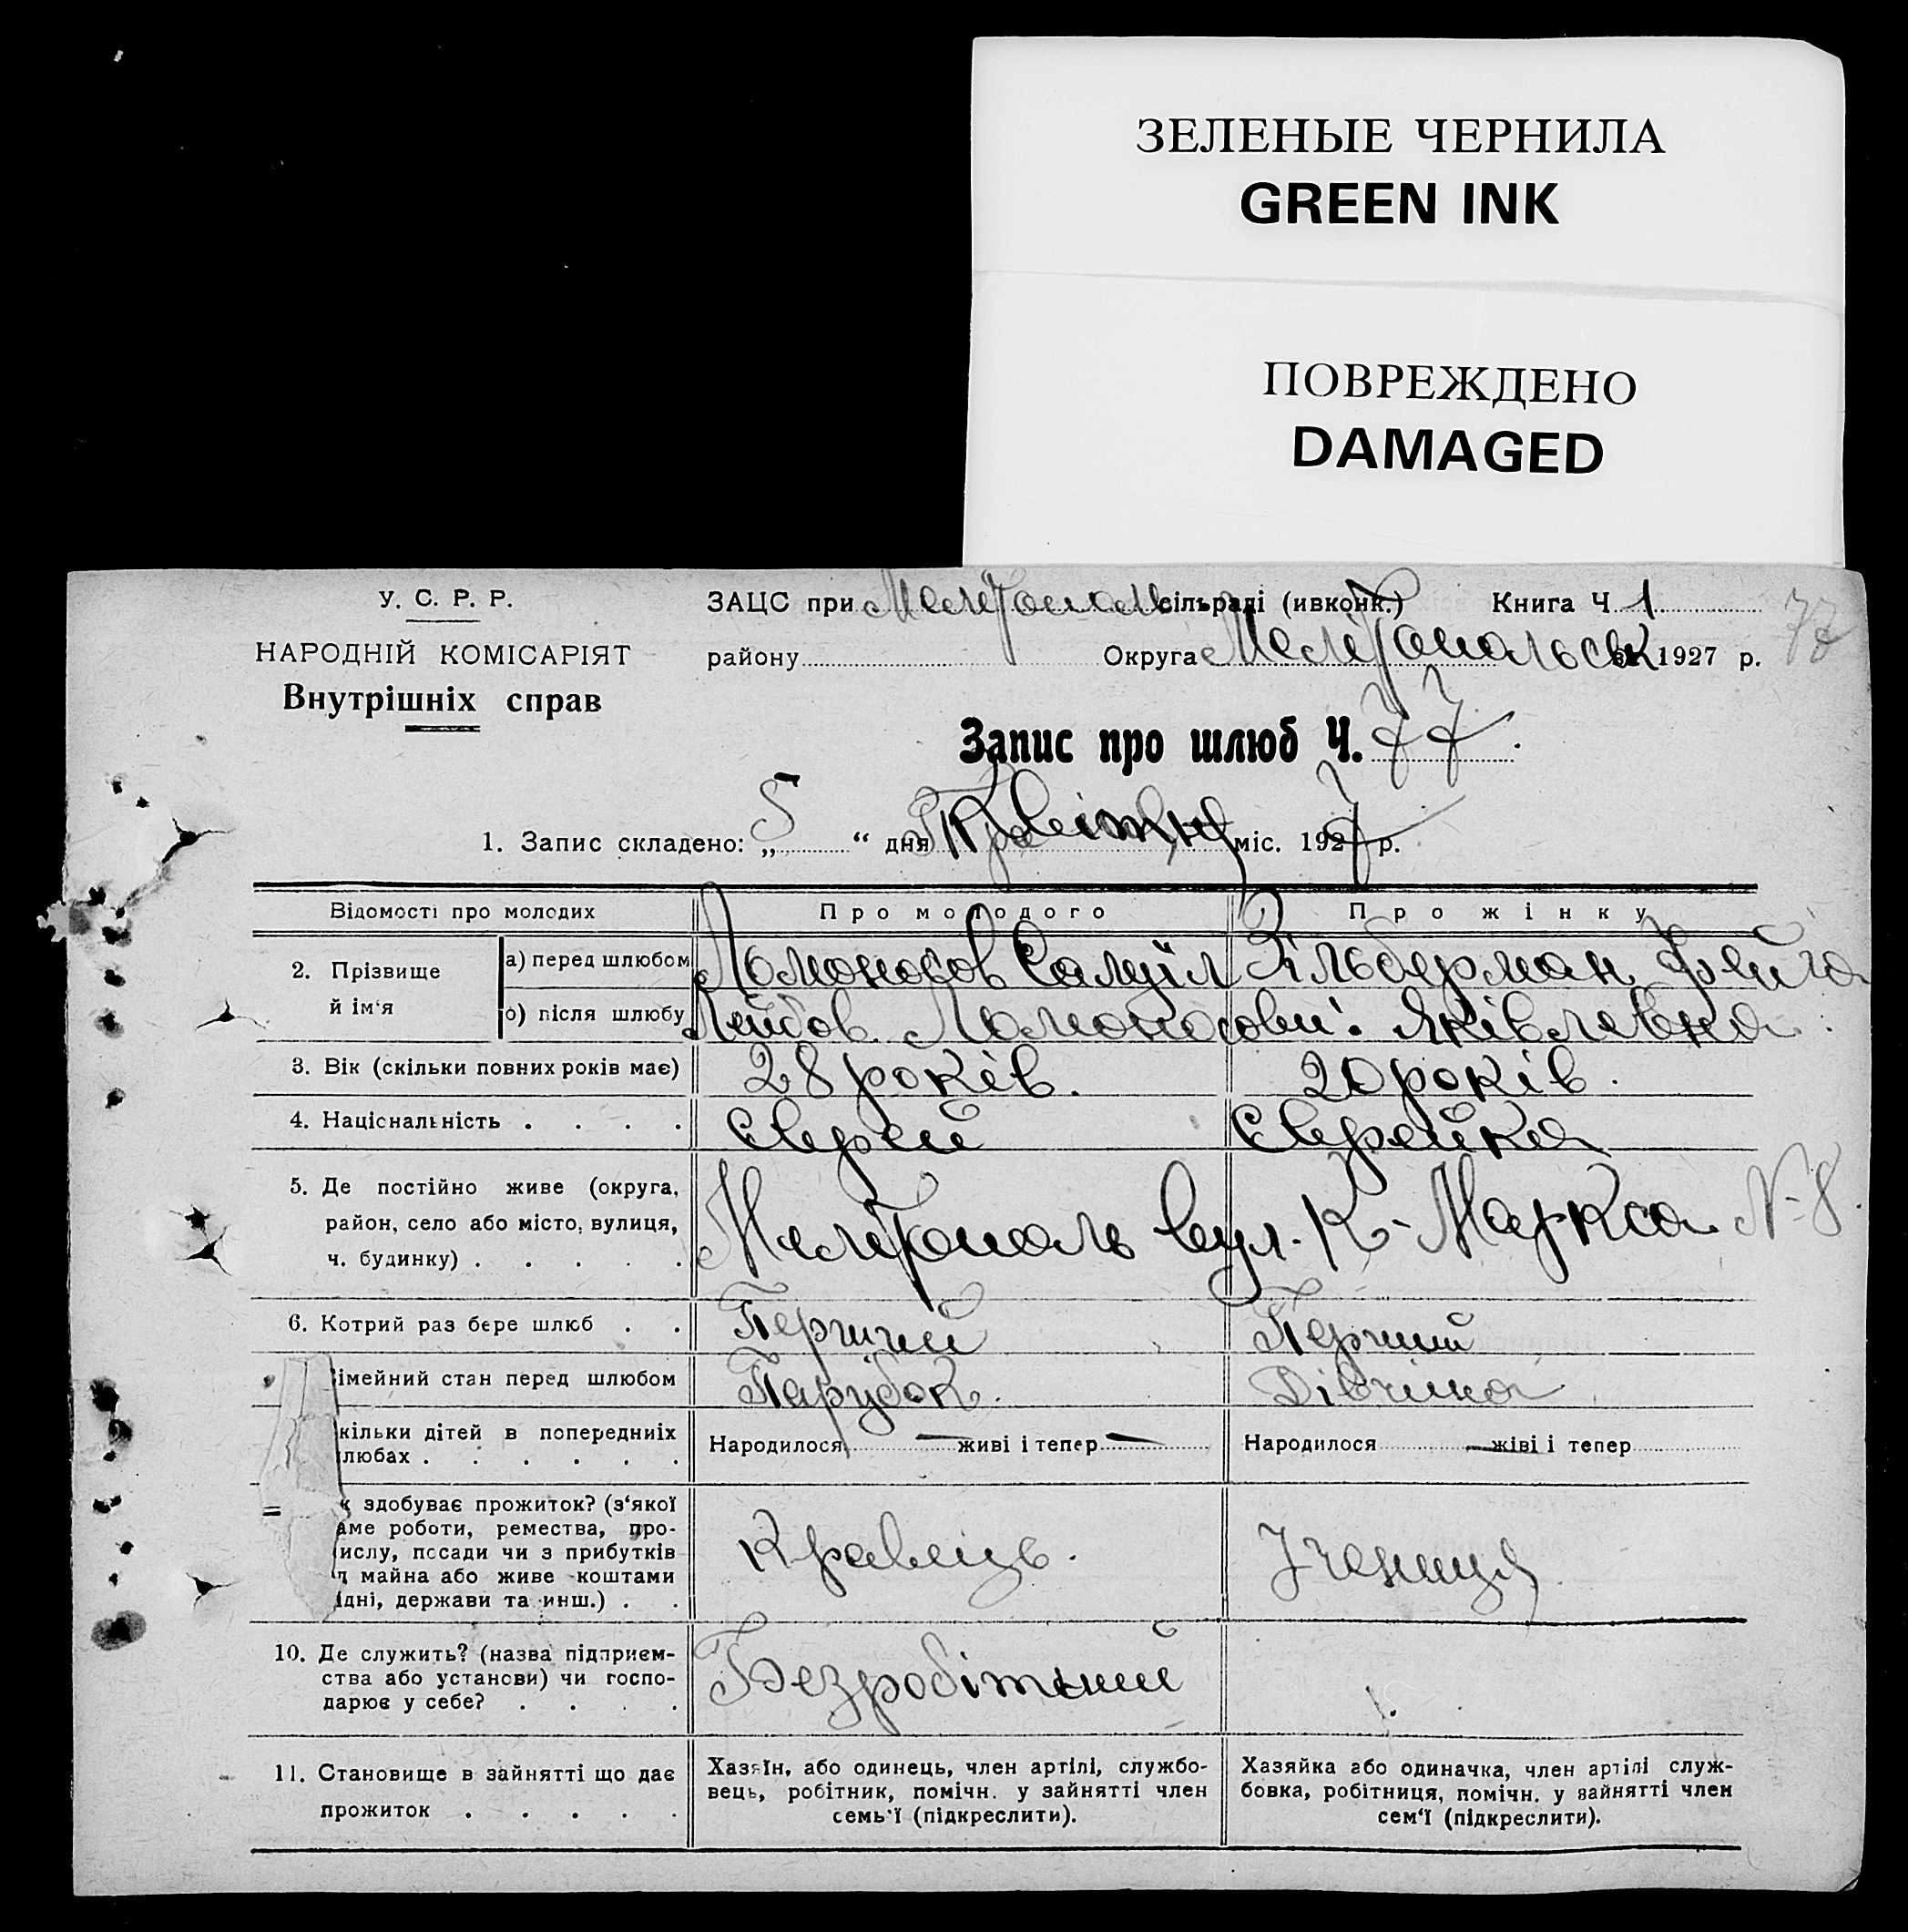 ЗЕЛЕНЫЕ ЧЕРНИЛА
GREEN INK
ПОВРЕЖДЕНО
DAMAGED
У. С. Р. Р.
НАРОДНІЙ КОМІСАРІЯТ
Внутрішніх справ
ЗАЦС при Мелітополь сільраді (ивконк.) Книга Ч 1
77
району Округа Мелітопольськ 1927 р.
Запис про шлюб Ч. 77.
1. Запис складено: „ 5 “ дня Квітня міс. 1927 р.
Відомості про молодих Про молодого Про жінку
2. Прізвище й ім‘я
а) перед шлюбом Ломоносов Самуїл Зільберман Фейга
б) після шлюбу Лейбов. Ломоносови. Яківлевна
3. Вік (скільки повних років має) 28 років. 20 років.
4. Національність . . . . Єврей Єврейка
5. Де постійно живе (округа,
район, село або місто, вулиця,
ч. будинку) . . . . .
Мелітополь вул. К-Маркса №8.
6. Котрий раз бере шлюб . . Перший Перший
імейний стан перед шлюбом Парубок. Дівчина
кільки дітей в попередниіх
любах . . . . . .
Народилося — живі і тепер — Народилося — жіві і тепер
к здобуває прожиток? (з‘якої
аме роботи, ремества, про-
ислу, посади чи з прибутків
д майна або живе коштами
ідні, держави та инш.) . .
Кравець. Учениця
10. Де служить? (назва підприєм-
ства або установи) чи госпо-
дарює у себе? . . . .
Безробітний
11. Становище в зайнятті що дає
прожиток . . . . .
Хазяїн, або одинець, член артілі, службо-
вець, робітник, помічн. у зайнятті член
семь‘ї (підкреслити).
Хазяйка або одиначка, член артілі служ-
бовка, робітниця, помічн. у зайнятті член
сем‘ї (підкреслити).